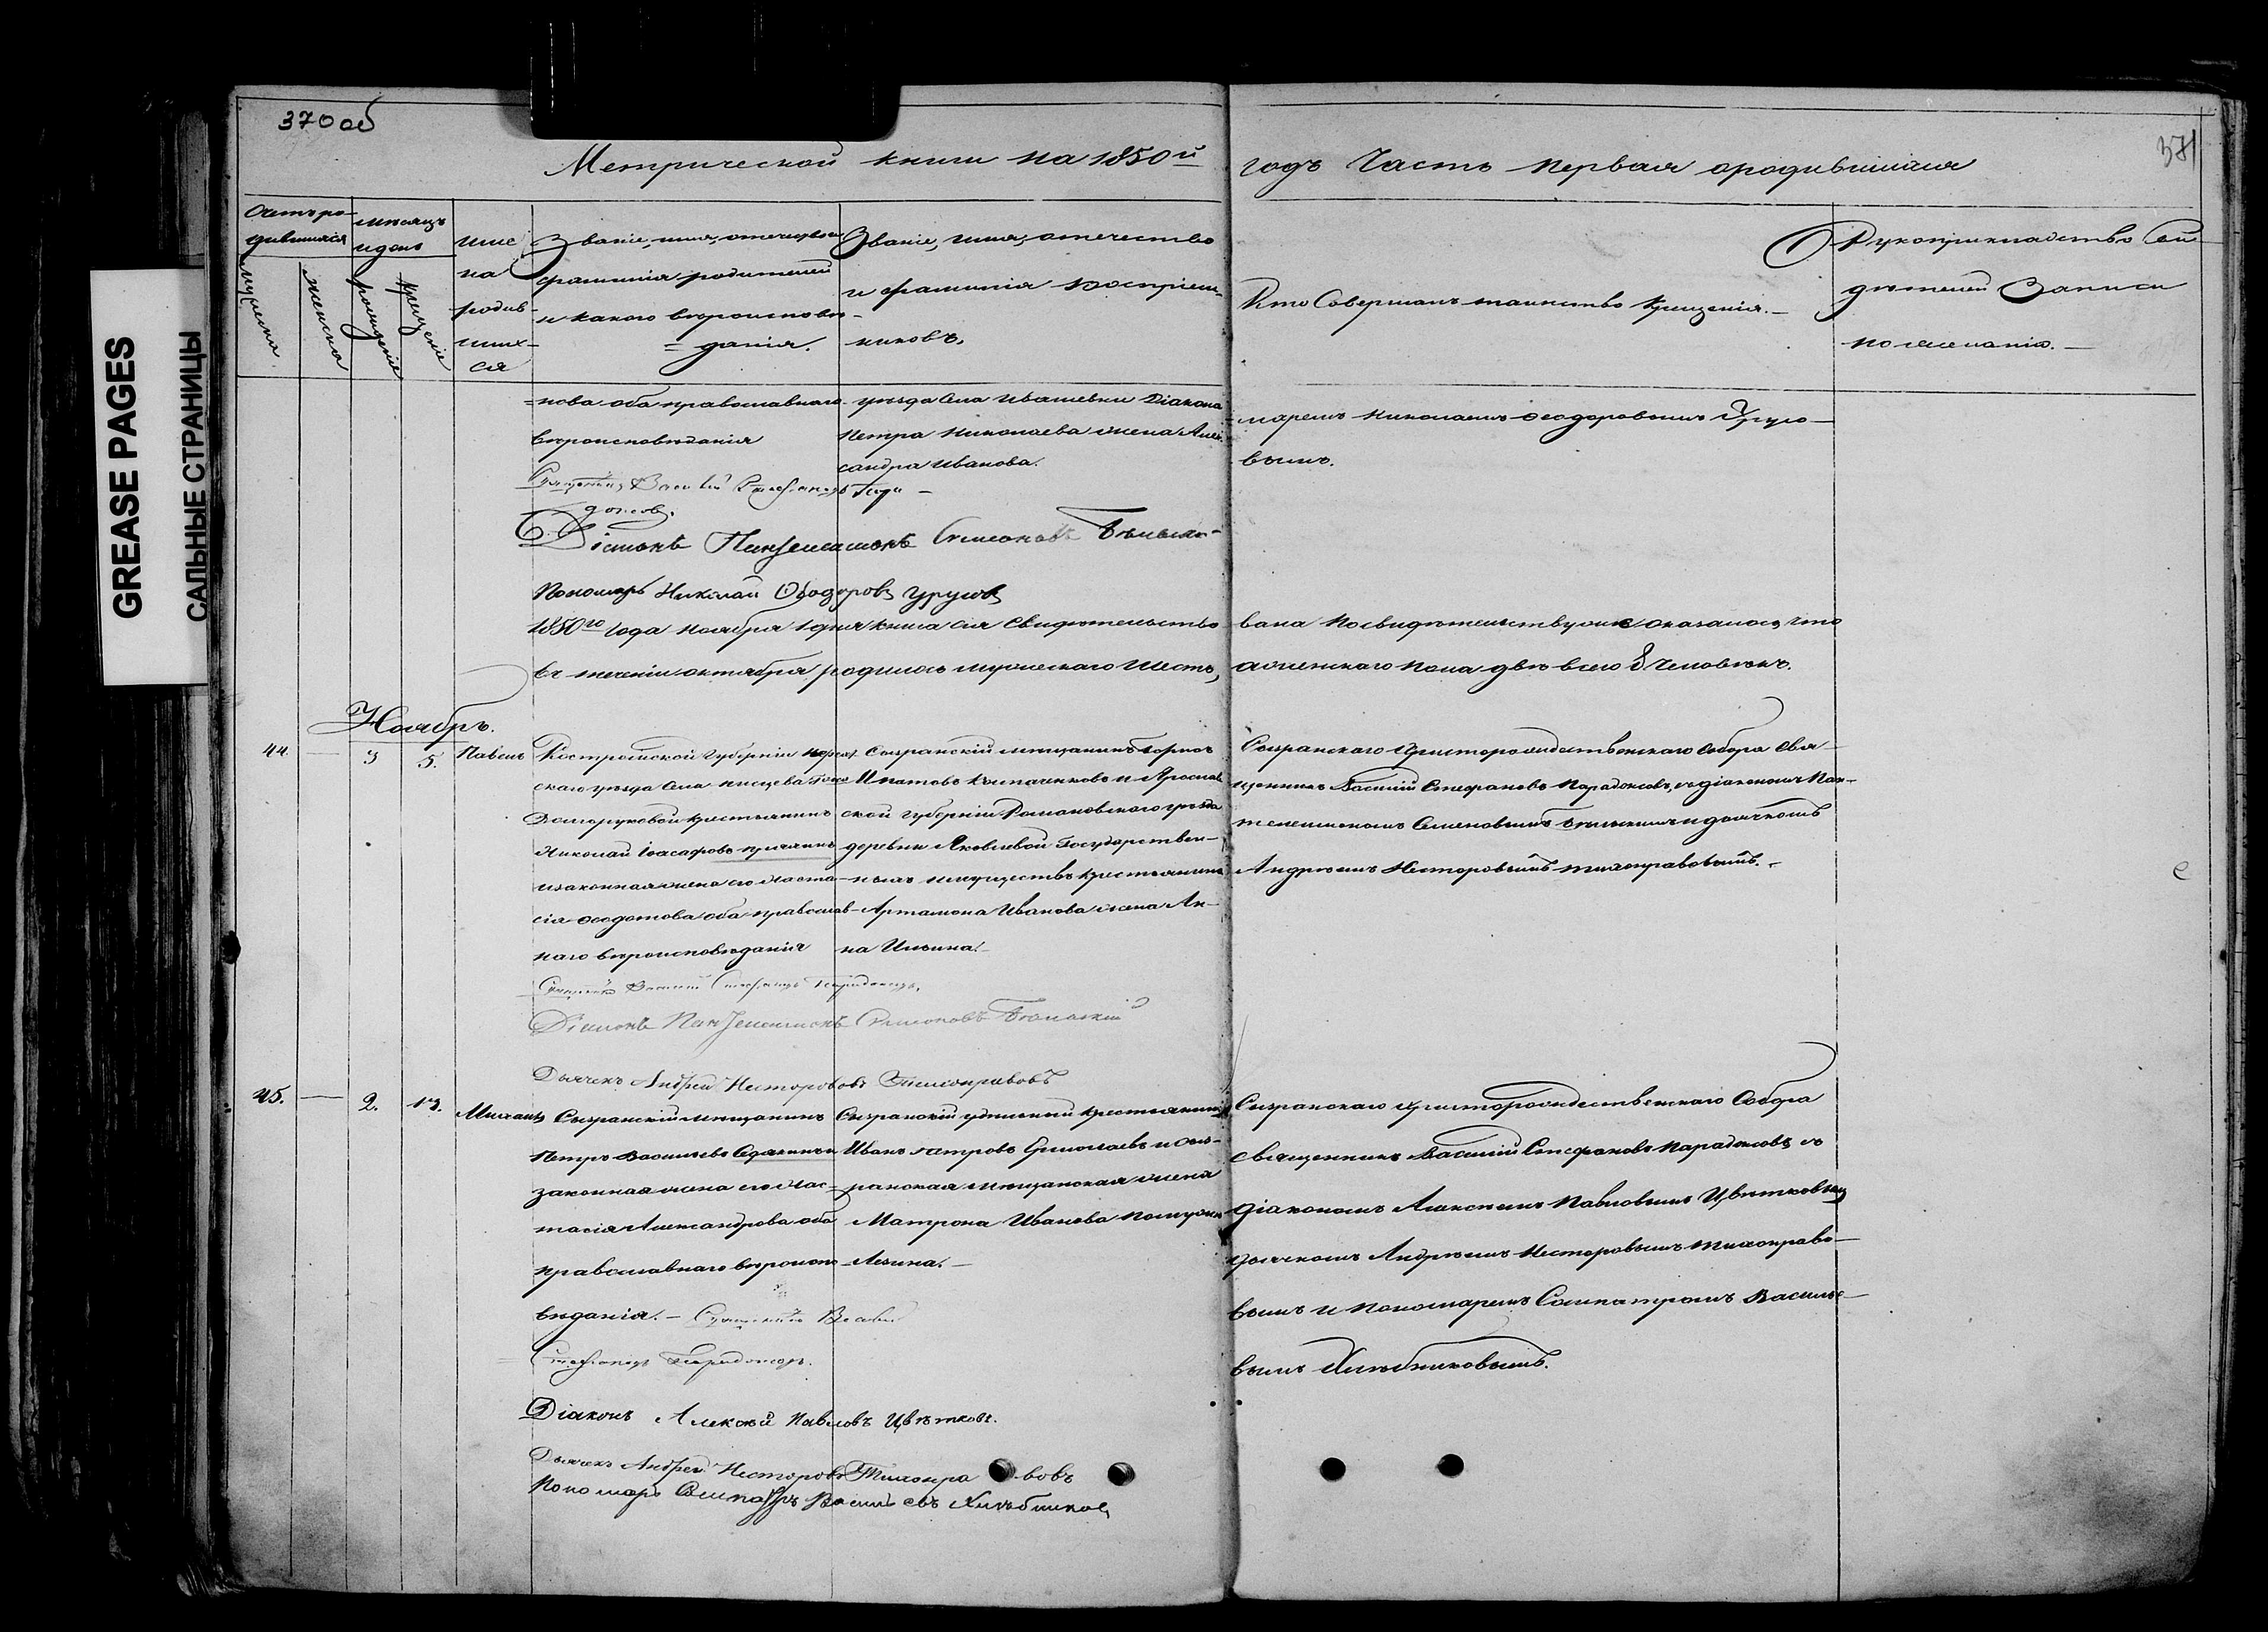 GREASE PAGES
САЛЬНЫЕ СТРАНИЦЫ
370 об
371
Метрической книги на 1850й годъ Часть первая ородившихся
Счетъ ро-
дившихся
мужеска
женска
мѣсяцъ
и день
рожденіе
крещеніе
име
на
родив-
ших-
ся
Званіе, имя, отечество и
фамилія родителей
и какого вѣроисповѣ-
=данія.
Званіе, имя, отечество
и фамилія воспріем-
никовъ.
Кто Совершалъ таинство Крещенія.
Рукоприкладство Сви
дѣтелей Записи
по желанію.
=нова оба православнаго
вѣроисповѣданія
уѣзда села Ивашевки Діакона
Петра Николаева жена Алек
сандра Иванова.
маремъ Николаемъ Феодоровымъ Уруго-
вымъ.
Священникъ Василій Стефановъ Пара-
доксовъ.
Діаконъ Пантелеимонъ Симеоновъ
Пономарь Николай Феодоровъ
1850го года Ноября 1 дня книга сія Свидѣтельство вана по свидѣтельству оказалось что
въ теченіи октября родилось мужескаго шесть, а женскаго пола двѣ всего 8 человѣкъ.
Ноябрь.
44. — 3 5. Павелъ
Костромской Губерніи
скаго уѣзда Села Писцева Гжи
Долгоруковой крестьянинъ
Николай Іоасафовъ
и законная жена его Анаста-
сія Феодотова оба православ-
наго вѣроисповѣданія
Сызранскій мѣщанинъ Борисъ
Ипатовъ Колпачниковъ и Ярослав
ской губерніи Романовскаго уѣзда
деревни Яковлевой Государствен-
ныхъ имуществъ крестьянина
Артамона Иванова жена Ан-
на Ильина.
Сызранскаго Христорождественскаго Собора Свя-
щенникъ Василій Стефановъ Парадоксовъ, съ діакономъ Пан-
телеимономъ Семеновымъ и дьячкомъ
Андреемъ Несторовымъ Тихонравовымъ.
Священникъ Василій Стефановъ Парадоксовъ.
Діаконъ Пантелеимонъ Симеоновъ
Дьячекъ Андрей Несторовъ Тихонравовъ
45. — 2. 13. Михаилъ
Сызранскій мѣщанинъ
Петръ Васильевъ Седякинъ и
законная жена его Анас-
тасія Александрова оба
православнаго вѣроиспо-
вѣданія.
Сызранскій удѣльный крестьянинъ
Иванъ Петровъ Ермолаевъ и Сыз-
ранская мѣщанская жена
Матрона Иванова
Сызранскаго Христорождественскаго Собора
священникъ Василій Стефановъ Парадоксовъ, съ
діакономъ Алексѣемъ Павловымъ Цвѣтковымъ
дьячкомъ Андреемъ Несторовымъ Тихонраво-
вымъ и пономаремъ Сосипатромъ Василье-
вымъ Хлѣбниковымъ.
Священникъ Василій
Стефановъ Парадоксовъ.
Діаконъ Алексѣй Павловъ Цвѣтковъ.
Дьячекъ Андрей Несторовъ Тихонра вовъ
Пономарь Сосипатръ Васильевъ Хлѣбниковъ